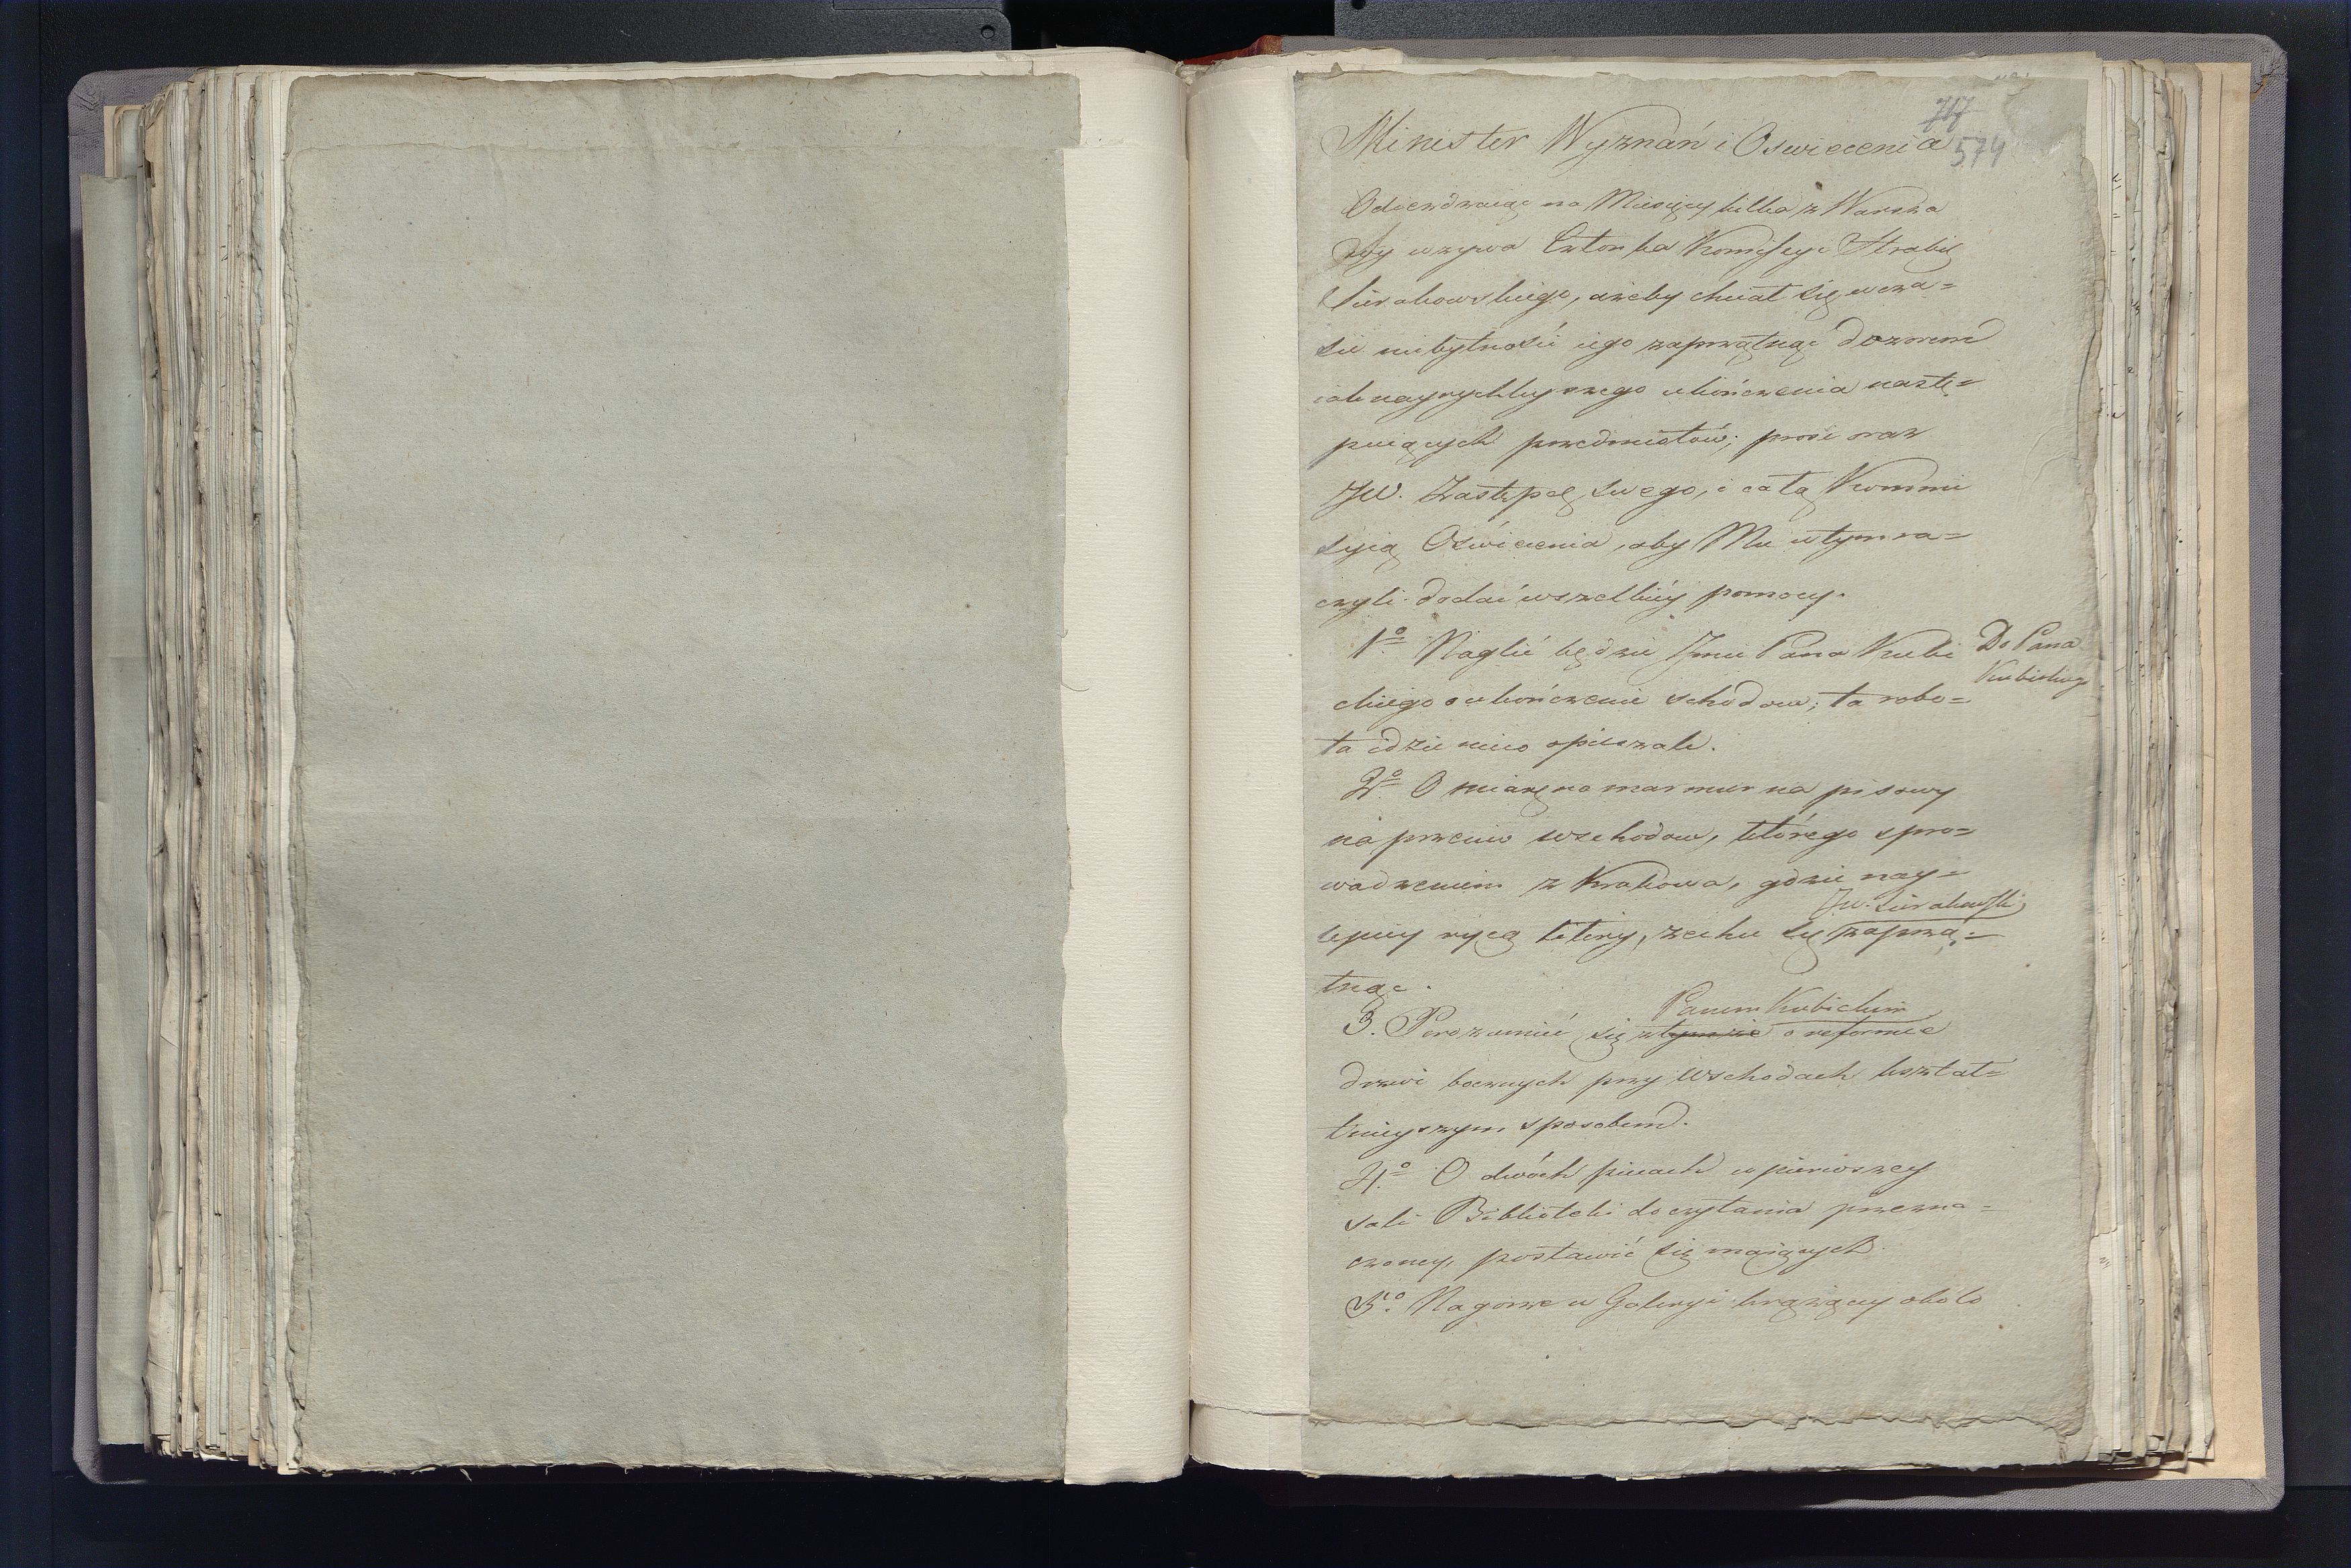 717
Minister Wyznań i Oswiecenia
574
Odiezdzaiąc na Miesięcy kilka z Warsza
wy wzywa Członka Komissyi Hrabię
Sierakowskiego, ażeby chciał się w cza=
sie niebytności iego zaprzątnąć dozorem
iak nayrychleyszego ukończenia nastę=
puiących przedmiotów; prosi oraz
JW. Zastępcę swego, i całą Kommi
syią Oświecenia, aby Mu w tym ra=
czyli dodać wszelkiéy pomocy.
1º Naglić będzie Jmci Pana Kubi
ckiego o ukończenie schodow; ta robo=
ta idzie nieco opieszale.
Do Pana
Kubickiego
2º O miarę na marmur na pisowy
na przeciw wschodow, którego spro=
wadzeniem z Krakowa, gdzie nay=
lepiey ryią litery, zechce się zaprzą=
JW. Sierakowski
tnąć.
3. Porozumieć się z tymże o reformie
Panem Kubickim
drzwi bocznych przy Wschodach kształ=
tnieyszym sposobem.
4º O dwóch piecach w pierwszey
sali Biblioteki do czytania przezna=
czoney, postawić się maiących.
5º Na gorze w Galeryi krążącey około